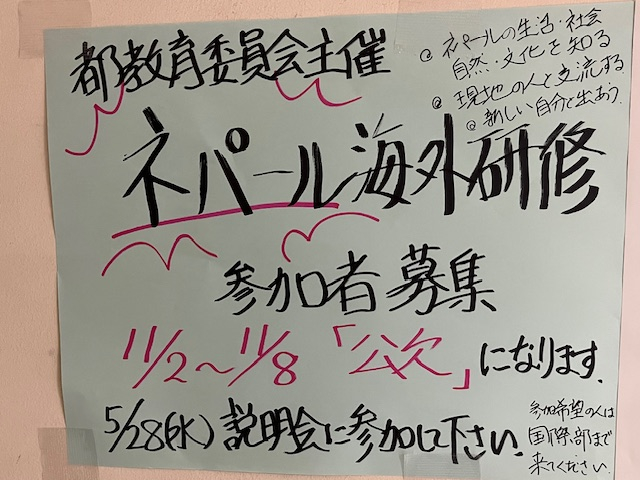 都教育委員会主催
@ ネパールの生活・社会
自然・文化を知る
@ 現地の人と交流する
@ 新しい自分と出あう
ネパール海外研修
参加者募集
11/2〜11/8「公欠」になります.
5/28(水)説明会に参加して下さい.
参加希望の人は
国際部まで
来てください.